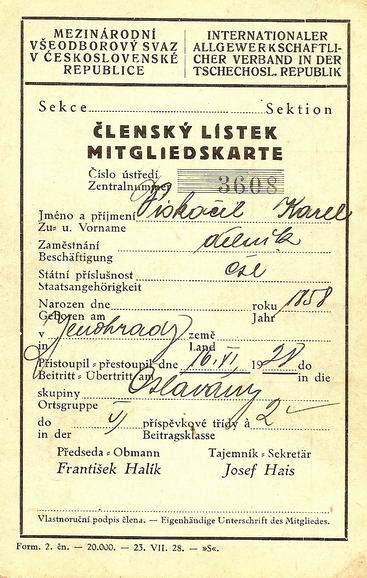 MEZINÁRODNÍ
VŠEODBOROVÝ SVAZ
V ČESKOSLOVENSKÉ
REPUBLICE
INTERNATIONALER
ALLGEWERKSCHAFTLI-
CHER VERBAND IN DER
TSCHECHOSL. REPUBLIK
Sekce Sektion
ČLENSKÝ LÍSTEK
MITGLIEDSKARTE
Číslo ústředí
Zentralnummer 3608
Jméno a příjmení Viskočil Karel
Zu- u. Vorname
Zaměstnání dělník
Beschäftigung
Státní příslušnost čsl
Staatsangehörigkeit
Narozen dne roku 1858
Geboren am Jahr
v země
in Land
Přistoupil - přestoupil dne 16. VI. 1928 do
Beitritt - Übertritt am in die
skupiny Oslavany
Ortsgruppe
do VI příspěvkové třídy à 2
in der Beitragsklasse
Předseda - Obmann Tajemník - Sekretär
František Halík Josef Hais
Vlastnoruční podpis člena. — Eigenhändige Unterschrift des Mitgliedes.
Form. 2. čn. — 20.000. — 23. VII. 28. — »S«.